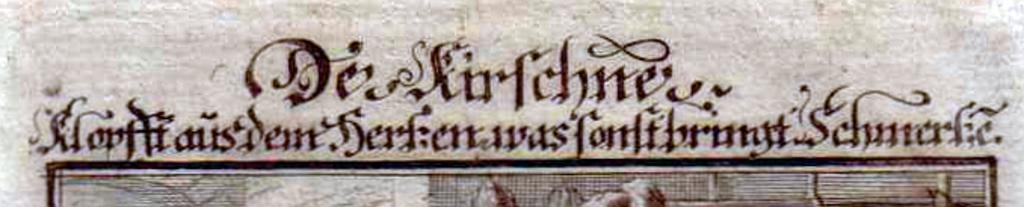 Der Kirschner.
Klopfft aus dem Hertzen, was sonst bringt Schmertzē.